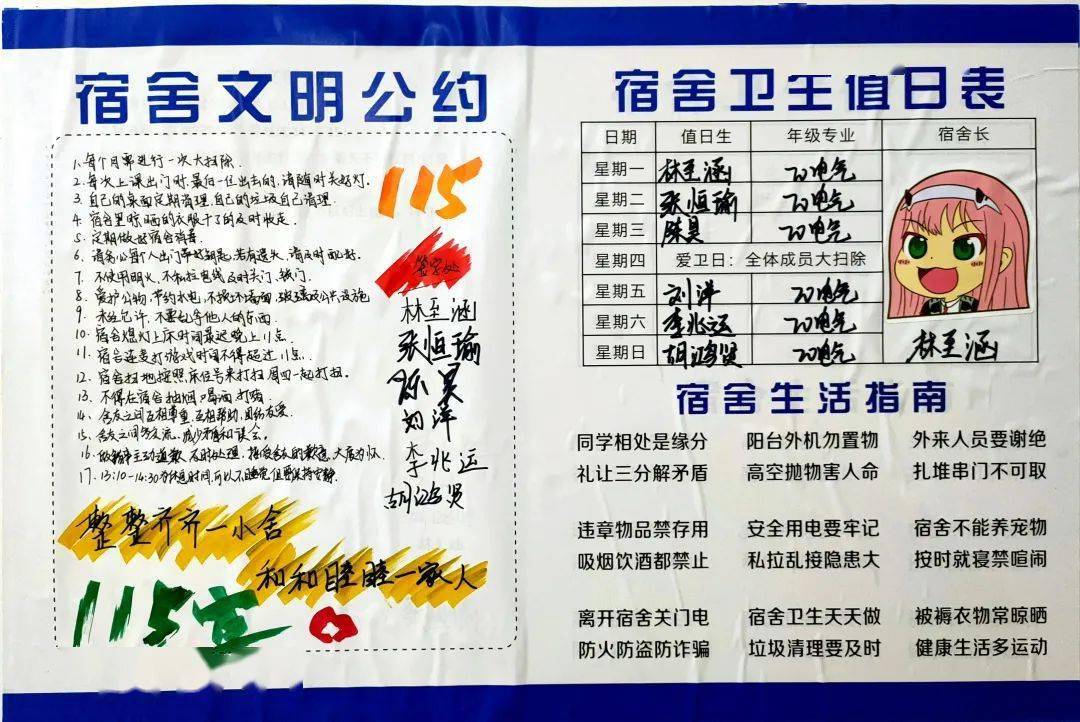 宿舍文明公约
1、每个月需进行一次大扫除.
2、每次上课出门时,最后一位出去的,请随时关好灯.
3、自己的桌面定期清理,自己的垃圾自己清理.
4、宿舍里晾晒的衣服干了的及时收走.
5、定期做好宿舍消毒.
6、请务必每个人出门带好钥匙,若有遗失,请及时配好.
7、不使用明火、不私拉电线及时关门、锁门.
8、爱护公物,节约水电,不损坏墙面、玻璃及公共设施
9、未经允许,不要乱拿他人的东西.
10、宿舍熄灯上床时间最迟晚上11点.
11、宿舍连麦打游戏时间不得超过11点.
12、宿舍扫地按照床位号来打扫周四一起打扫.
13、不得在宿舍抽烟喝酒打牌.
14、舍友之间互相尊重,互相帮助,团结友爱.
15、舍友之间多交流,减少矛盾和误会.
16、做错事主动道歉、及时处理,接受舍友的歉意,大度为怀.
17、13:10-14:30午休时间,可以不睡觉但要保持安静.
115
签字处
林至涵
张恒瑜
陈昊
刘洋
李兆运
胡鸿贤
整整齐齐一小舍
和和睦睦一家人
115室
宿舍卫生值日表
日期 值日生 年级专业 宿舍长
星期一 林至涵 20电气
星期二 张恒瑜 20电气
星期三 陈昊 20电气
星期四 爱卫日：全体成员大扫除
星期五 刘洋 20电气
星期六 李兆运 20电气
星期日 胡鸿贤 20电气
林至涵
宿舍生活指南
同学相处是缘分 阳台外机勿置物 外来人员要谢绝
礼让三分解矛盾 高空抛物害人命 扎堆串门不可取
违章物品禁存用 安全用电要牢记 宿舍不能养宠物
吸烟饮酒都禁止 私拉乱接隐患大 按时就寝禁喧闹
离开宿舍关门电 宿舍卫生天天做 被褥衣物常晾晒
防火防盗防诈骗 垃圾清理要及时 健康生活多运动